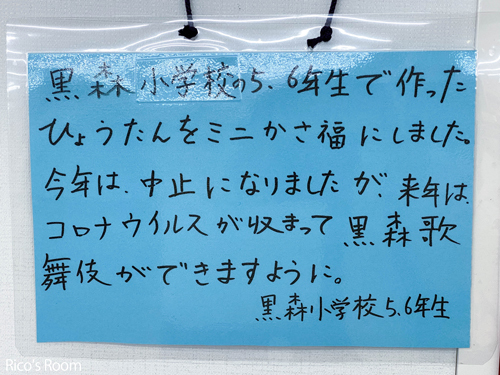 黒森小学校の5、6年生で作った
ひょうたんをミニかさ福にしました。
今年は、中止になりましたが、来年は、
コロナウイルスが収まって黒森歌
舞伎ができますように。
黒森小学校5、6年生
Rico's Room